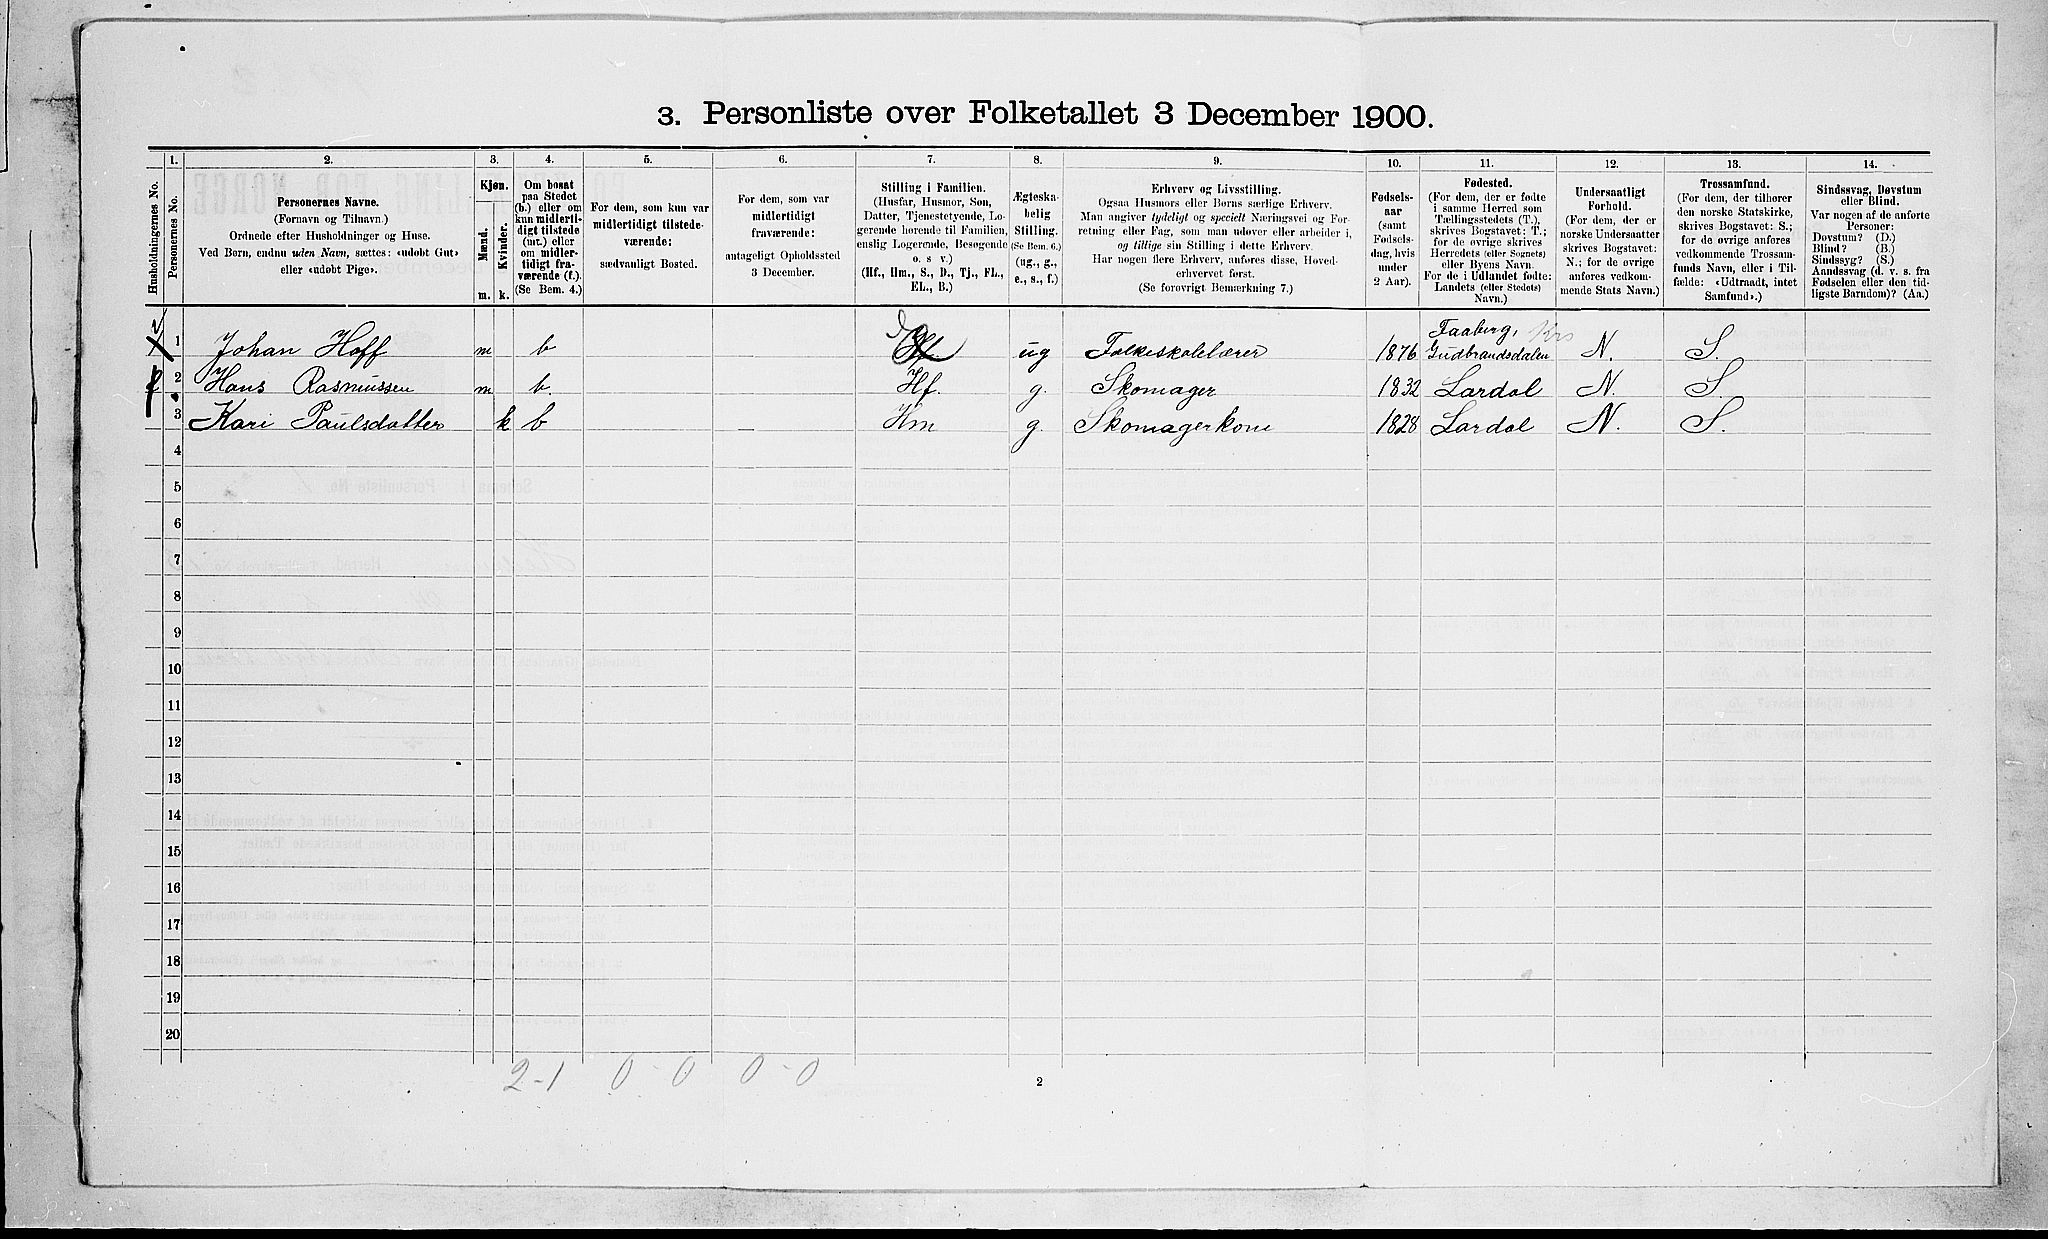 3. Personliste over Folketallet 3 December 1900.
1. 2. 3. 4. 5. 6. 7. 8. 9. 10. 11. 12. 13. 14.
Husholdningernes No.
Personernes No.
Personernes Navne.
(Fornavn og Tilnavn.)
Ordnede efter Husholdninger og Huse.
Ved Børn, endnu uden Navn, sættes: «udøbt Gut»
eller «udøbt Pige».
Kjøn.
Mænd.
Kvinder.
m. k.
Om bosat
paa Stedet
(b.) eller om
kun midlerti-
digt tilstede
(mt.) eller
om midler-
tidigt fra-
værende (f.).
(Se Bem. 4.)
For dem, som kun var
midlertidigt tilstede-
værende:
sædvanligt Bosted.
For dem, som var
midlertidigt
fraværende:
antageligt Opholdssted
3 December.
Stilling i Familien.
(Husfar, Husmor, Søn,
Datter, Tjenestetyende, Lo-
gerende hørende til Familien,
enslig Logerende, Besøgende
o. s v.)
(Hf., Hm., S., D., Tj., FL.,
EL., B.)
Ægteska-
belig
Stilling.
(Se Bem. 6.)
(ug., g.,
e., s., f.)
Erhverv og Livsstilling.
Ogsaa Husmors eller Børns særlige Erhverv.
Man angiver tydeligt og specielt Næringsvei og For-
retning eller Fag, som man udøver eller arbeider i,
og tillige sin Stilling i dette Erhverv.
Har nogen flere Erhverv, anføres disse, Hoved-
erhvervet først.
(Se forøvrigt Bemærkning 7.)
Fødsels-
aar
(samt
Fødsels-
dag, hvis
under
2 Aar).
Fødested.
(For dem, der er fødte
i samme Herred som
Tællingsstedets (T.),
skrives Bogstavet: T.;
for de øvrige skrives
Herredets (eller Sognets)
eller Byens Navn.
For de i Udlandet fødte:
Landets (eller Stedets)
Navn.)
Undersaatligt
Forhold.
(For dem, der er
norske Undersaatter
skrives Bogstavet:
N.; for de øvrige
anføres vedkom-
mende Stats Navn.)
Trossamfund.
(For dem, der tilhører
den norske Statskirke,
skrives Bogstavet: S.;
for de øvrige anføres
vedkommende Trossam-
funds Navn, eller i Til-
fælde: «Udtraadt, intet
Samfund».)
Sindssvag, Døvstum
eller Blind.
Var nogen af de anførte
Personer:
Døvstum? (D.)
Blind? (B.)
Sindssyg? (S.)
Aandssvag (d. v. s. fra
Fødselen eller den tid-
ligste Barndom)? (Aa.)
1 Johan Hoff m b ug Folkeskolelærer 1876 Faaberg, Gudbrandsdalen N. S.
2 Hans Rasmussen m b. Hf. g. Skomager 1832 Lardal N. S.
3 Kari Paulsdatter k b — Hm g. Skomagerkone 1828 Lardal N. S.
4
5
6
7
8
9
10
11
12
13
14
15
16
17
18
19
20
2-1 0-0 0-0
2